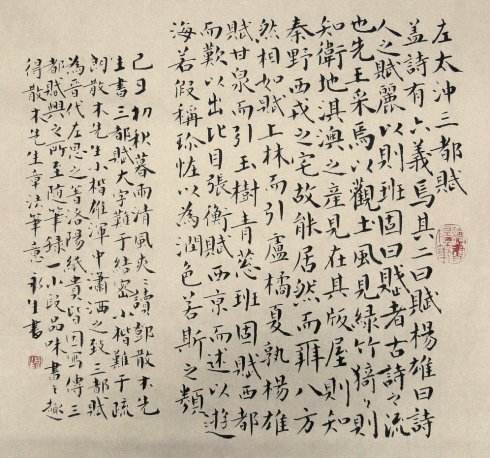 左太沖三都賦
蓋詩有六義焉其二曰賦楊雄曰詩
人之賦麗以則班固曰賦者古詩之流
也先王采焉以觀土風見綠竹猗〻則
知衛地淇澳之產見在其版屋則知
秦野西戎之宅故能居然而辯八方
然相如賦上林而引盧橘夏孰楊雄
賦甘泉而引玉樹青蔥班固賦西都
而歎以出比目張衡賦西京而述以遊
海若假稱珍恠以為潤色若斯之類
己丑初秋暮雨清風爽〻讀鄧散木先
生書三都賦大字難于結密小楷難于疏
朗散木先生小楷雄渾中瀟洒之致三都賦
為晉代左思之著洛陽紙貴皆因寫傳三
都賦興之所至隨筆一小段品味書之趣
得散木先生章法筆意 生書